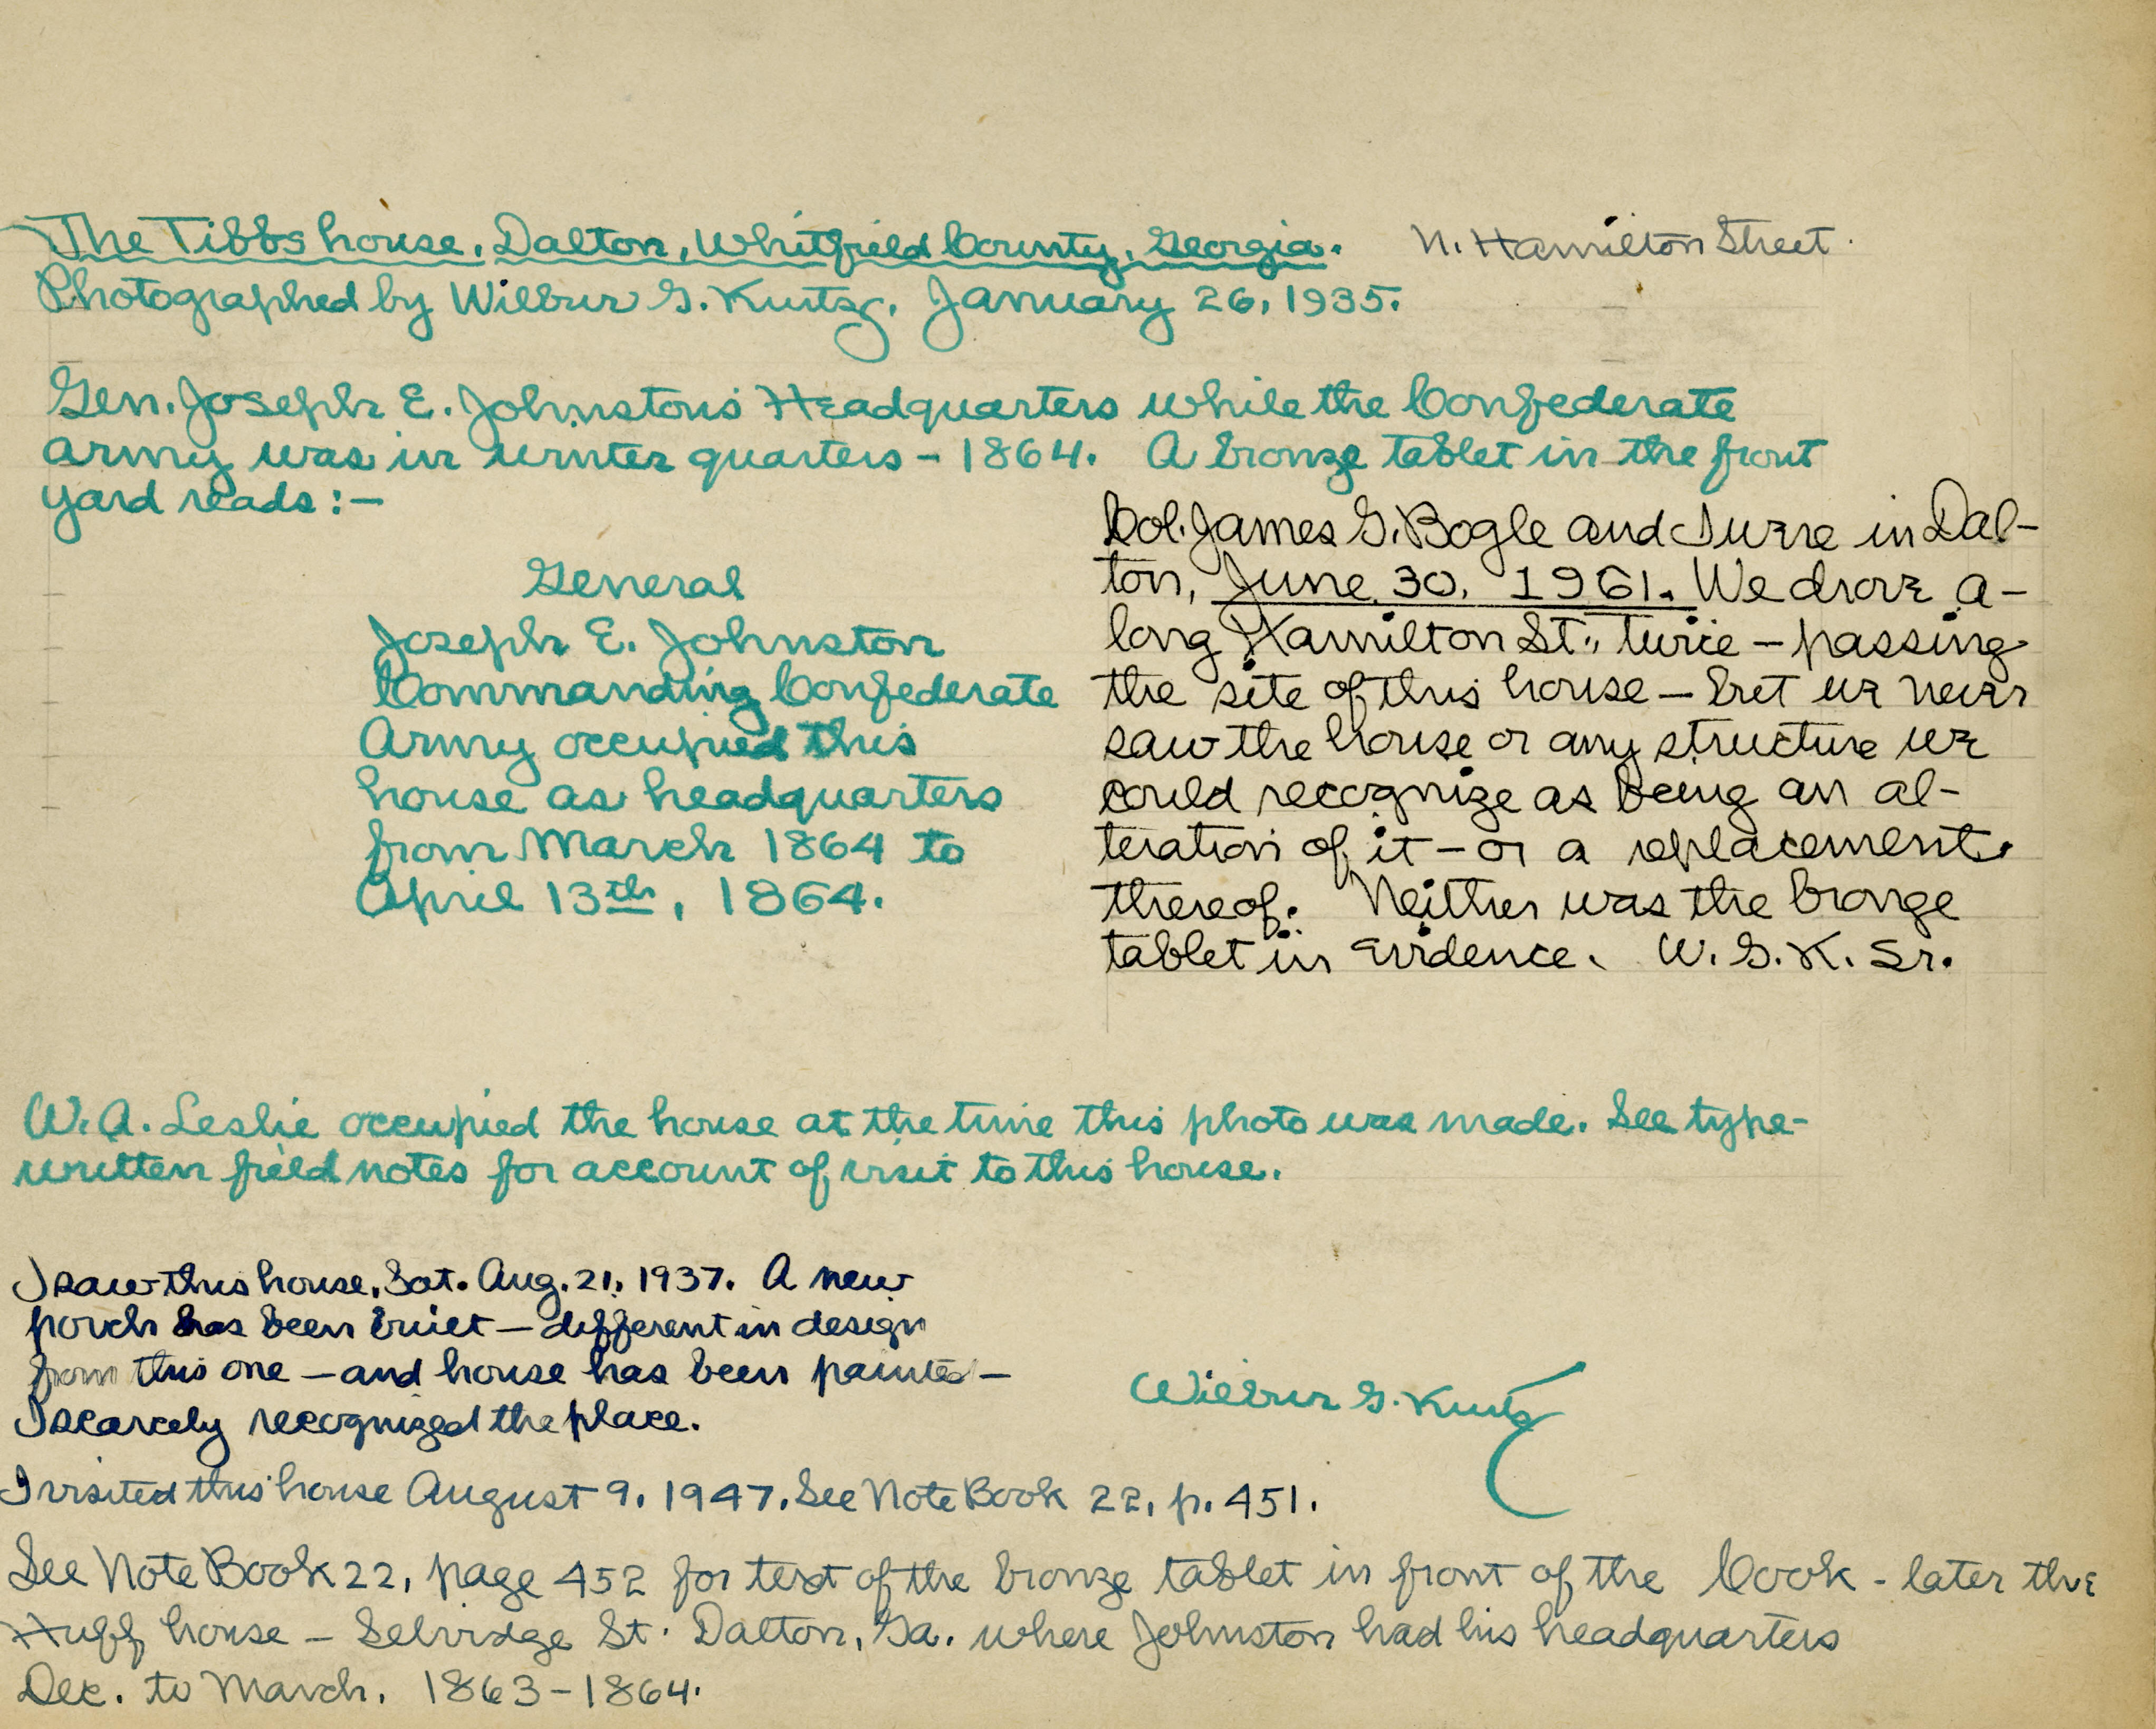 The Tibbs house, Dalton, Whitfield County, Georgia. N. Hamilton Street.
Photographed by Wilbur G. Kurtz, January 26, 1935.
Gen. Joseph E. Johnston's Headquarters while the Confederate
army was in winter quarters - 1864. A bronze tablet in the front
yard reads:-
General
Joseph E. Johnston
Commanding Confederate
Army occupied this
house as headquarters
from March 1864 to
April 13th, 1864.
Col. James G. Bogle and I were in Dal-
ton, June 30, 1961. We drove a-
long Hamilton St., twice - passing
the site of this house - but we never
saw the house or any structure we
could recognize as being an al-
teration of it - or a replacement
thereof. Neither was the bronze
tablet in evidence. W. G. K. Sr.
W. A. Leslie occupied the house at the time this photo was made. See type-
written field notes for account of visit to this house.
I saw this house, Sat. Aug. 21, 1937. A new
porch has been built - different in design
from this one - and house has been painted -
I scarcely recognized the place.
Wilbur G. Kurtz
I visited this house August 9, 1947. See Note Book 22, p. 451.
See Note Book 22, page 452 for text of the bronze tablet in front of the Cook - later the
Huff house - Selvidge St. Dalton, Ga. where Johnston had his headquarters
Dec. to March, 1863-1864.